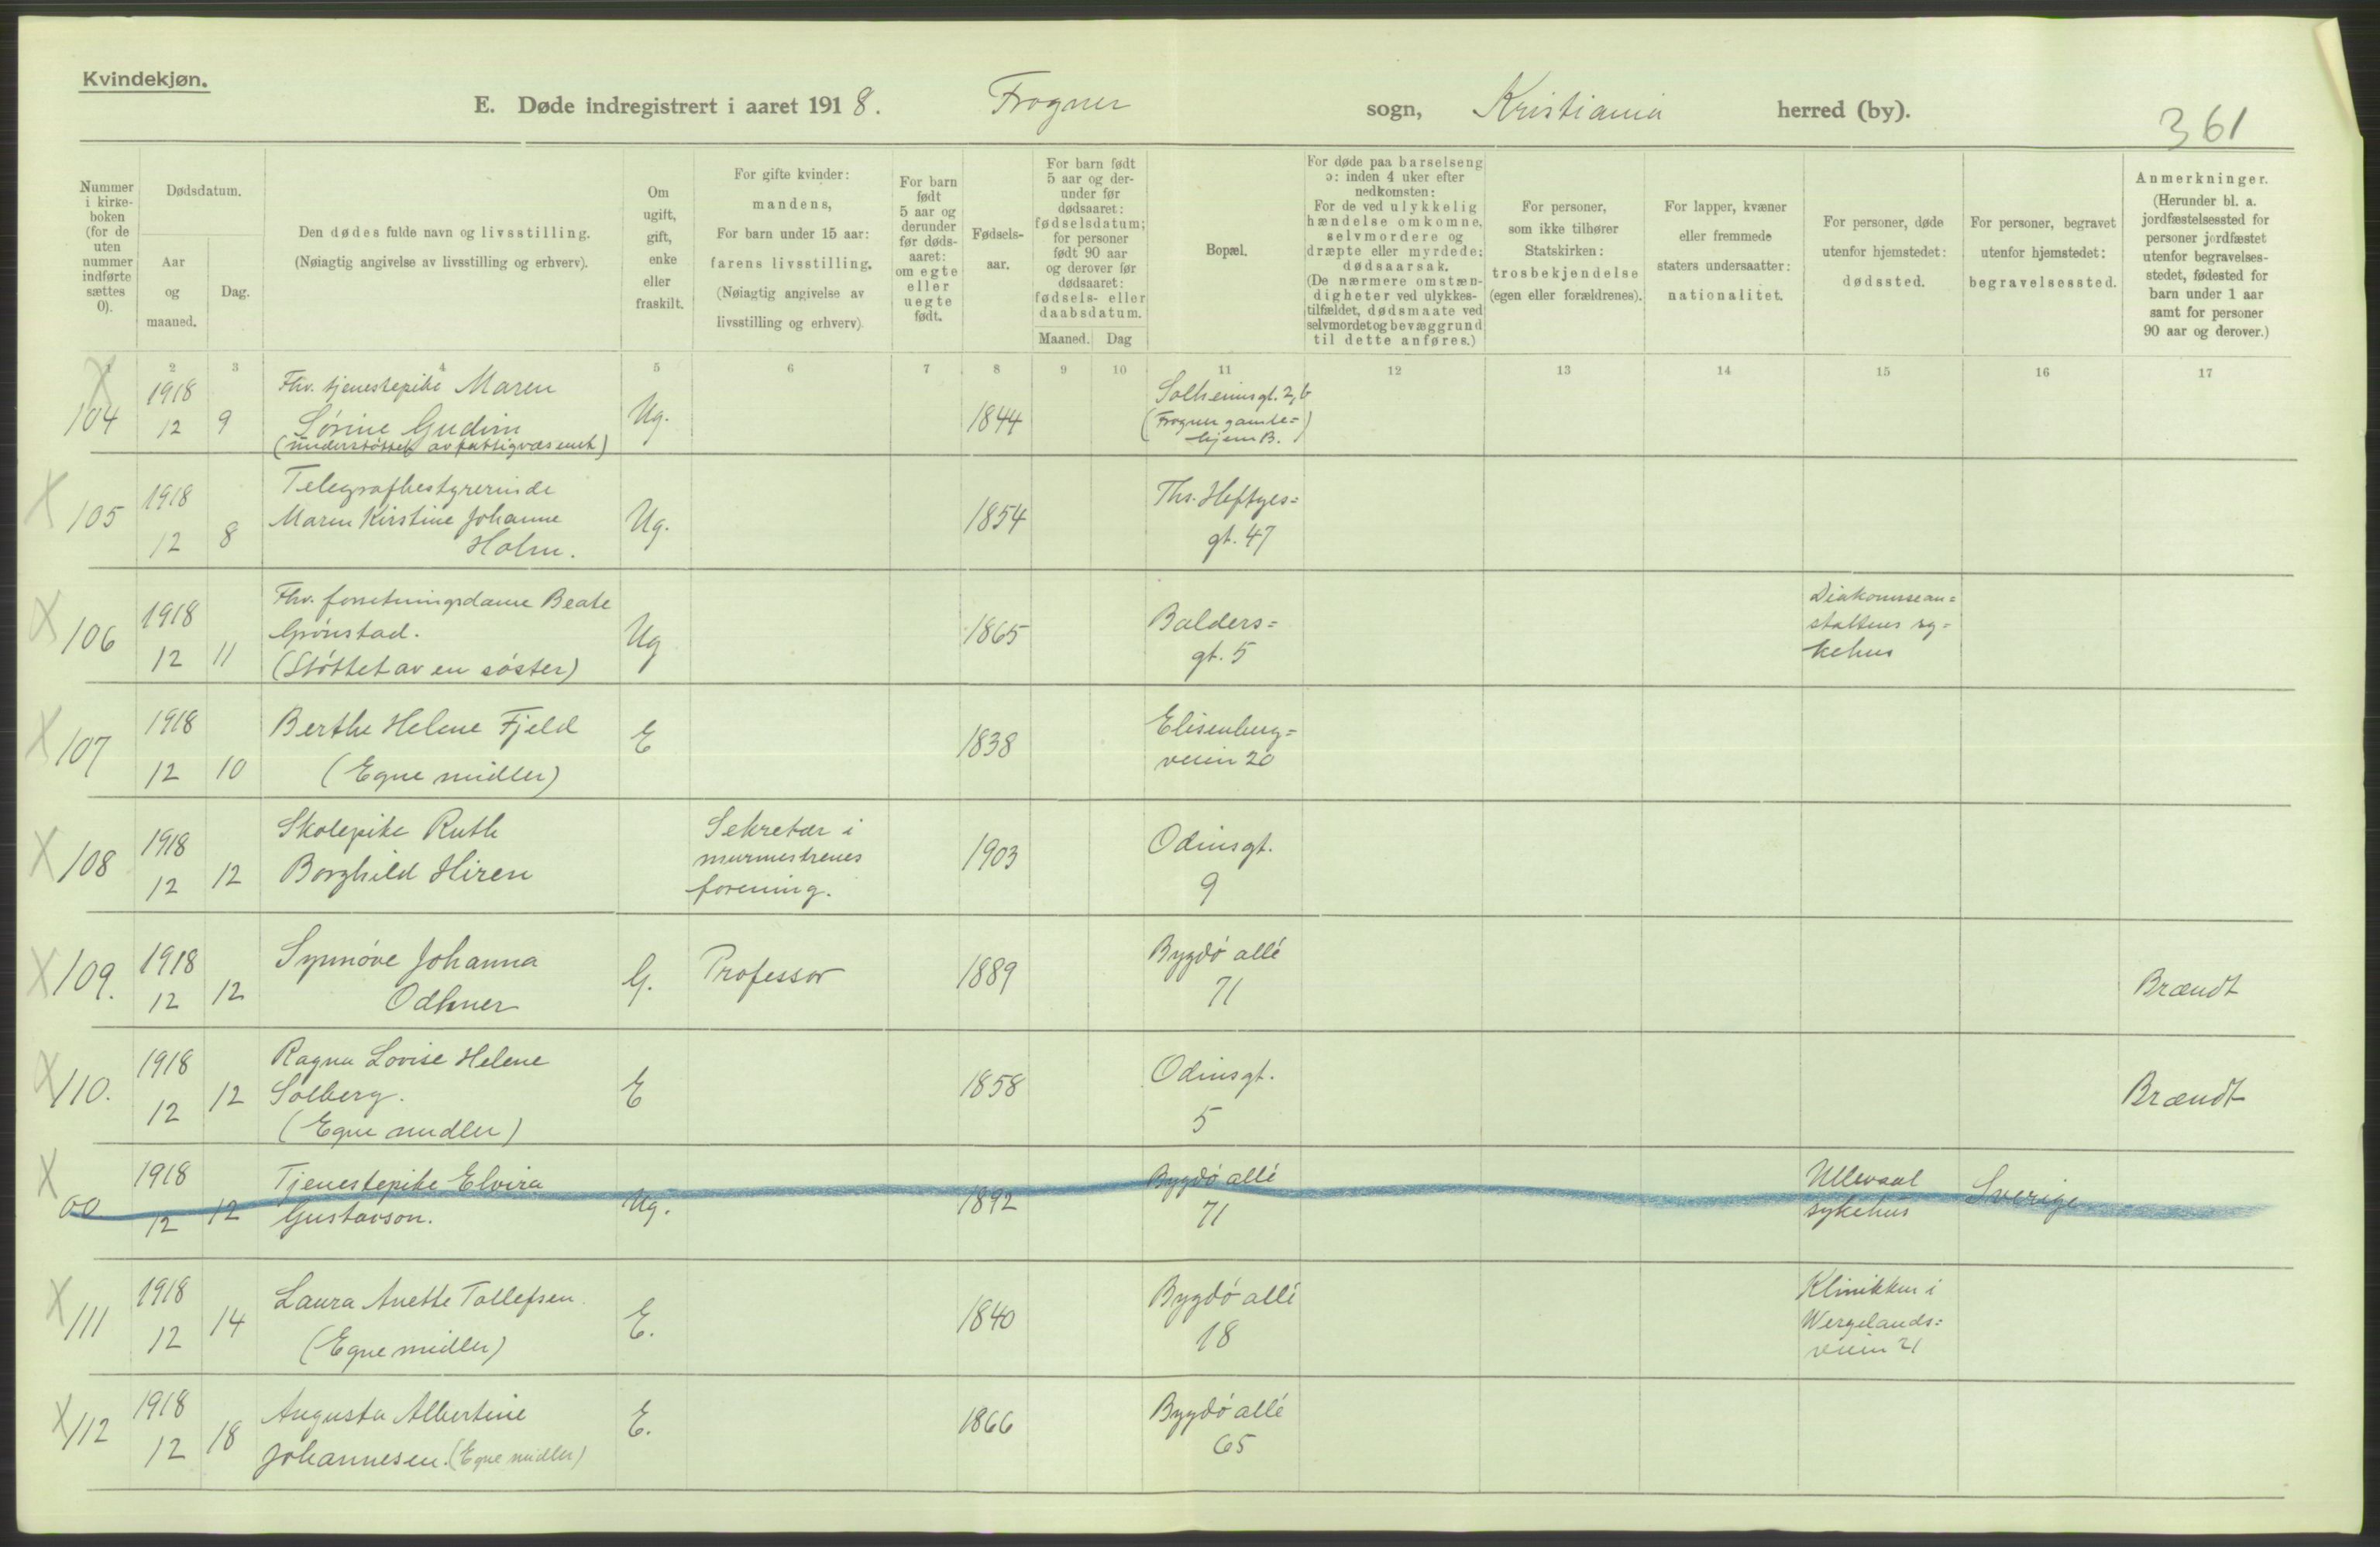 Kvindekjøn.
E. Døde indregistrert i aaret 1918. Frogner sogn, Kristiania herred (by).
361
Nummer i kirkeboken (for de uten nummer indførte sættes 0).
Dødsdatum.
Aar og maaned.
Dag.
Den dødes fulde navn og livsstilling.
(Nøiagtig angivelse av livsstilling og erhverv).
Om ugift, gift, enke eller fraskilt.
For gifte kvinder:
mandens,
For barn under 15 aar:
farens livsstilling.
(Nøiagtig angivelse av
livsstilling og erhverv)
For barn født 5 aar og derunder før dødsaaret: om egte eller uegte født.
Fødselsaar.
For barn født
5 aar og der-
under før
dødsaaret:
fødselsdatum;
for personer
født 90 aar
og derover før
dødsaaret:
fødsels- eller
daabsdatum.
Maaned. Dag
Bopæl.
For døde paa barselseng
ɔ: inden 4 uker efter
nedkomsten:
For de ved ulykkelig
hændelse omkomne,
selvmordere og
dræpte eller myrdede:
dødsaarsak.
(De nærmere omstæn-
digheter ved ulykkes-
tilfældet, dødsmaate ved
selvmordet og bevæggrund
til dette anføres.)
For personer,
som ikke tilhører
Statskirken:
trosbekjendelse
(egen eller forældrenes).
For lapper, kvæner
eller fremmede
staters undersaatter:
nationalitet.
For personer, døde
utenfor hjemstedet:
dødssted.
For personer, begravet
utenfor hjemstedet:
begravelsessted.
Anmerkninger.
(Herunder bl. a.
jordfæstelsessted for
personer jordfæstet
utenfor begravelses-
stedet, fødested for
barn under 1 aar
samt for personer
90 aar og derover.)
1 2 3 4 5 6 7 8 9 10 11 12 13 14 15 16 17
X 104 1918 12 9
Fhv. tjenestepike Maren
Sørine Gudim
(understøttet av fattigvæsenet)
Ug. 1844
Solheimsgt. 2, b
(Frogner gamle=
hjem B.)
X 105 1918 12 8
Telegrafbestyrerinde
Maren Kirstine Johanne
Holm.
Ug. 1854
Ths. Heftyes=
gt. 47
X 106 1918 12 11
Fhv. forretningsdame Beate
Grønstad.
(Støttet av en søster)
Ug 1865
Balders=
gt. 5
Diakonissean=
staltens sy=
kehus
X 107 1918 12 10
Berthe Helene Fjeld
(Egne midler)
E 1838
Elisenberg=
veien 20
X 108 1918 12 12
Skolepike Ruth
Borghild Hiren
Sekretær i
murmestrenes
forening.
1903
Odinsgt.
9
X 109. 1918 12 12
Synnøve Johanna
Odhner
G. Professor 1889
Bygdø allé
71
Brændt
X 110. 1918 12 12
Ragna Lovise Helene
Solberg.
(Egne midler)
E 1858
Odinsgt.
5
Brændt
X 00 1918 12 12
Tjenestepike Elvira
Gustavson.
Ug. 1892
Bygdø allé
71
Ullevaal
sykehus
Sverige
X 111 1918 12 14
Laura Anette Tollefsen.
(Egne midler)
E. 1840
Bygdø allé
18
Klinikken i
Wergelands=
veien 21
X 112 1918 12 18
Augusta Albertine
Johannesen. (Egne midler)
E. 1866
Bygdø allé
65